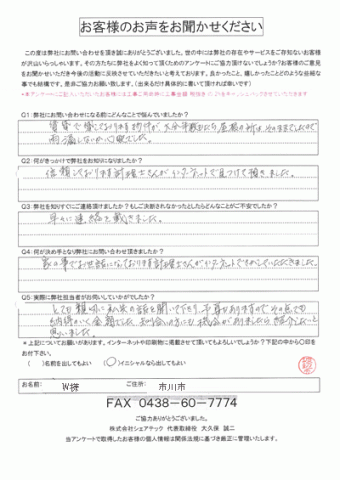 お客様のお声をお聞かせください
この度は弊社にお問い合わせを頂き誠にありがとうございました。世の中には弊社の存在やサービスをご存知ないお客様
が沢山いらっしゃいます。その方たちに弊社をよく知って頂くためのアンケートにご協力頂けないでしょうか?お客様のご意見
をお聞かせいただき今後の活動に反映させていただきたいと考えております。良かったこと、嬉しかったことどのような些細な
事でも結構です。是非ご協力お願い致します。(出来るだけ具体的に書いて頂ければ幸いです)
Q1:弊社にお問い合わせになる前にどんなことで悩んでいましたか?
Q2:何がきっかけで弊社をお知りになりましたか?
信頼しております計理士さんがインターネットで見つけて頂きました。
Q3:弊社を知りすぐにご連絡頂けましたか?もしご決断されなかったとしたらどんなことがご不安でしたか?
早々に連絡を戴きました。
Q4:何が決め手となり弊社にお問い合わせ頂きましたか?
家の事でお世話になっております計理士さんがインターネットでさがしていただきました。
Q5:実際に弊社担当者がお伺いしていかがでしたか?
とても親切に私共の話を聞いて下さり、予算がありますのでその点でも
思いました。
*上記についてお願いがあります。インターネットや印刷物に掲載させて頂いてもよろしいでしょうか?下記の中から○印を
お付け下さい。
( )名前を出してもよい (○)イニシャルなら出してもよい
お名前: W様 ご住所: 市川市
FAX 0438-60-7774
ご協力ありがとうございました。
株式会社シェアテック 代表取締役 大久保 誠二
当アンケートで取得したお客様の個人情報は関係法規に基づき厳正に管理いたします。